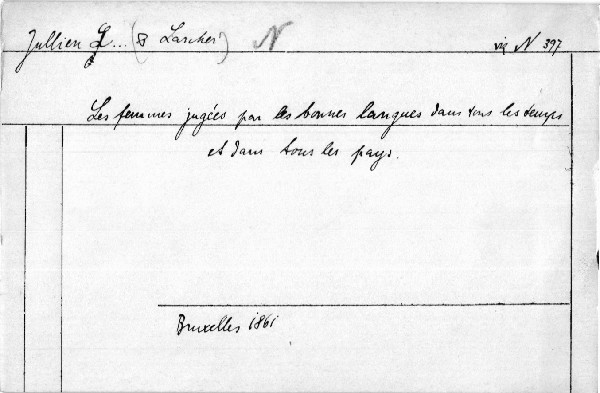 Jullien L... (& Larcher) N viz N 397
Les femmes jugées par les bonnes langues dans tous les temps
et dans tous les pays.
Bruxelles 1861